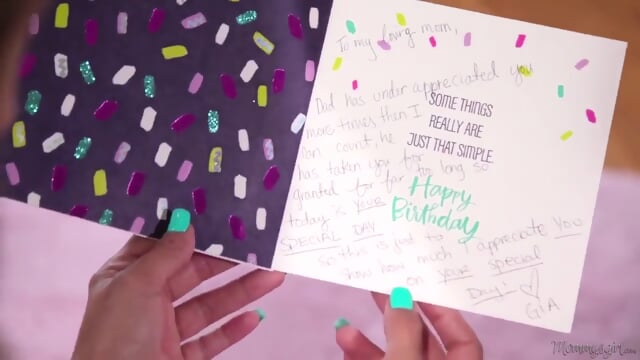 To my loving mom,
Dad has under appreciated you
more times than I
can count, he
has taken you for
granted for far too long so
today is your
SPECIAL DAY
so this is just to
show how much I appreciate you
on your special
Day!
GIA
SOME THINGS
REALLY ARE
JUST THAT SIMPLE
Happy
Birthday
Mommysgirl.com